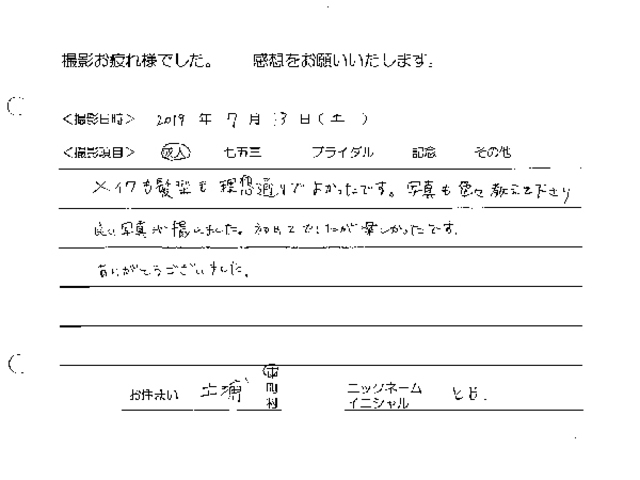 撮影お疲れ様でした。 感想をお願いいたします。
<撮影日時> 2019 年 7 月 13 日(土)
<撮影項目> 成人 七五三 ブライダル 記念 その他
メイクも髪型も理想通りでよかったです。写真も色々教えて下さり
良い写真が撮れました。初めてでしたが楽しかったです。
ありがとうございました。
お住まい 土浦 市 町 村 ニックネーム イニシャル